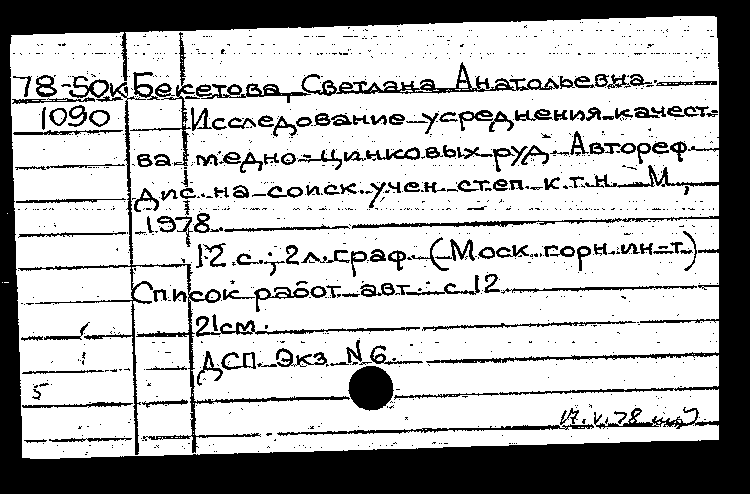 78-50к Бекетова, Светлана Анатольевна
1090 Исследование усреднения качест-
ва медно-цинковых руд. Автореф.
дис. на соиск. учен. степ. к.т.н. М.,
1978.
12 с.; 2 л. граф. (Моск. горн. ин-т.)
Список работ авт.: с. 12
21 см.
ДСП. Экз. N 6.
5
17.V.78